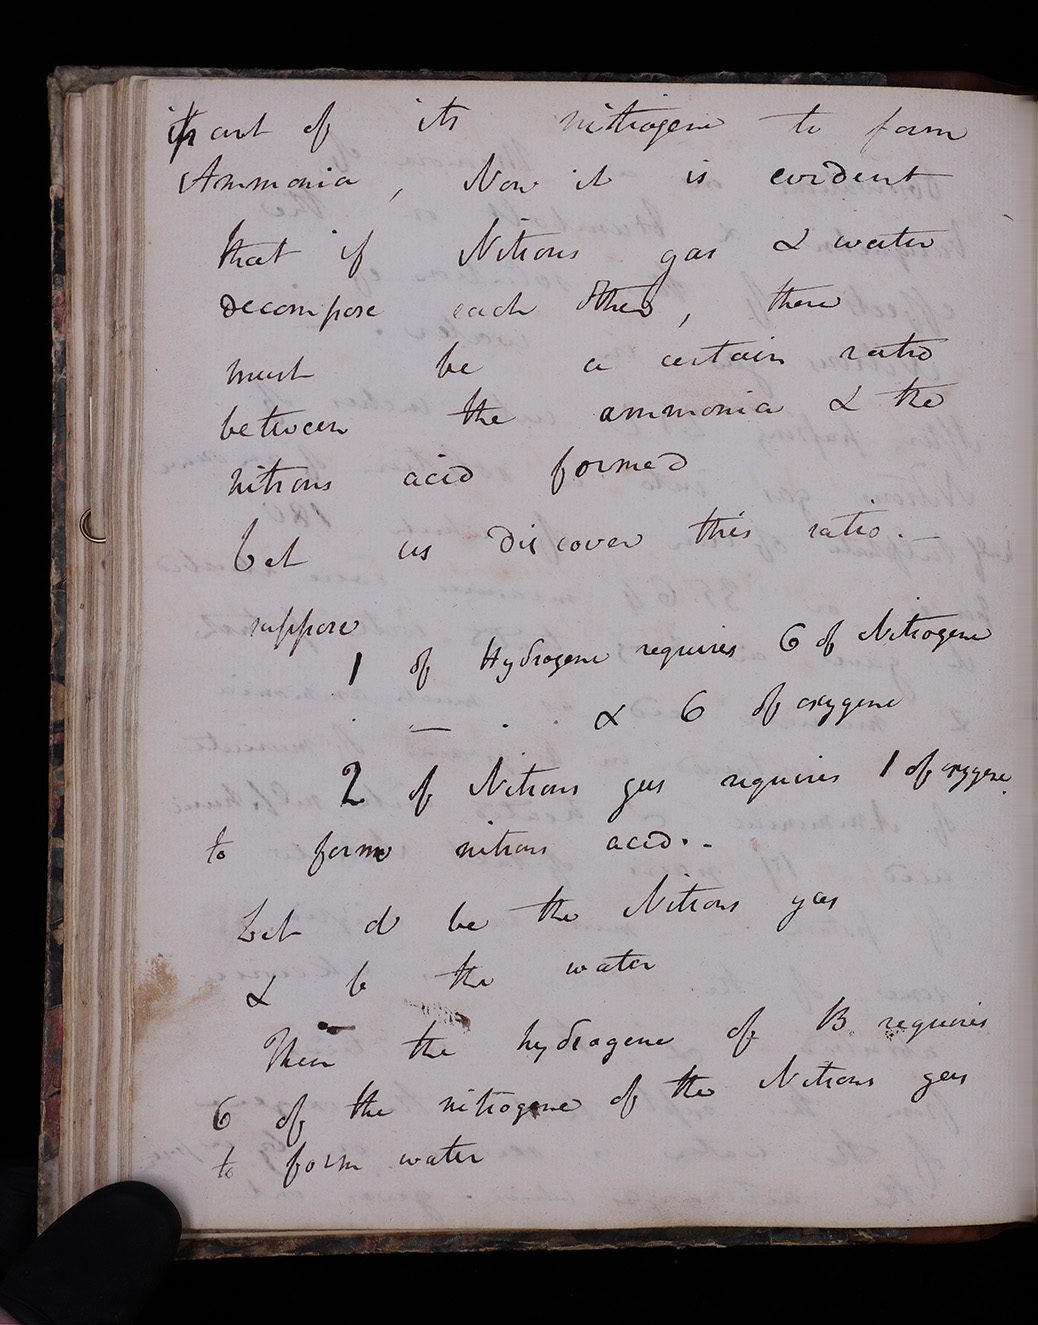 part of its nitrogene to form
Ammonia, Now it is evident
that if Nitrous gas & water
decompose each other, there
must be a certain ratio
between the ammonia & the
nitrous acid formed
Let us discover this ratio. —
suppose
1 of Hydrogene requires 6 of Nitrogene
. — . . & 6 of oxygene
2 of Nitrous gas requires 1 of oxygene.
to form nitrous acid. -
Let d be the Nitrous gas
& b the water
Then the hydrogene of B requires
6 of the nitrogene of the Nitrous gas
to form water